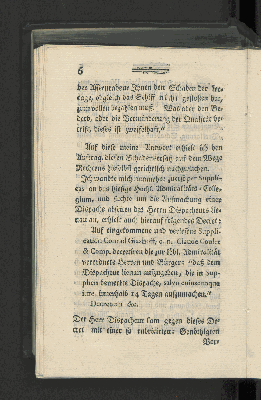 6
der Assecuradeur Ihnen den Schaden der Ser-
cage, obgleich das Schiff nicht gestossen hat,
zu bezahlen muß. Was aber den Be-
derb, oder die Verminderung der Qualität be-
trift, dieses ist zweifelhaft."
Auf diese meine Antwort erhielt ich den
Auftrag, diesen Schadenersatz auf dem Wege
Rechtens gerichtlich nachzusuchen.
Ich wandte mich nunmehro zuerst per Suppli-
cam an das hiesige Hochl. Admiralitäts-Colle-
gium, und suchte um die Aufmachung einer
Dispache abseiten des Herrn Dispacheurs die-
ran, erhielt auch hierauf folgendes Decret:
Auf eingekommene und verlesene Suppli-
cation Conrad n. Claude Couler
& Comp. decretiren die zur löbl. Admiralität
verordnete Herren und Bürger: "daß dem
Dispacheur hieran aufzugeben, die in Sup-
plicis bemerkte Dispache, salvo
innerhalb 14 Tagen aufzumachen."
Der Herr Dispacheur kam gegen dieses De-
cret mit einer so rubricirten: Genöthigten
Vor-